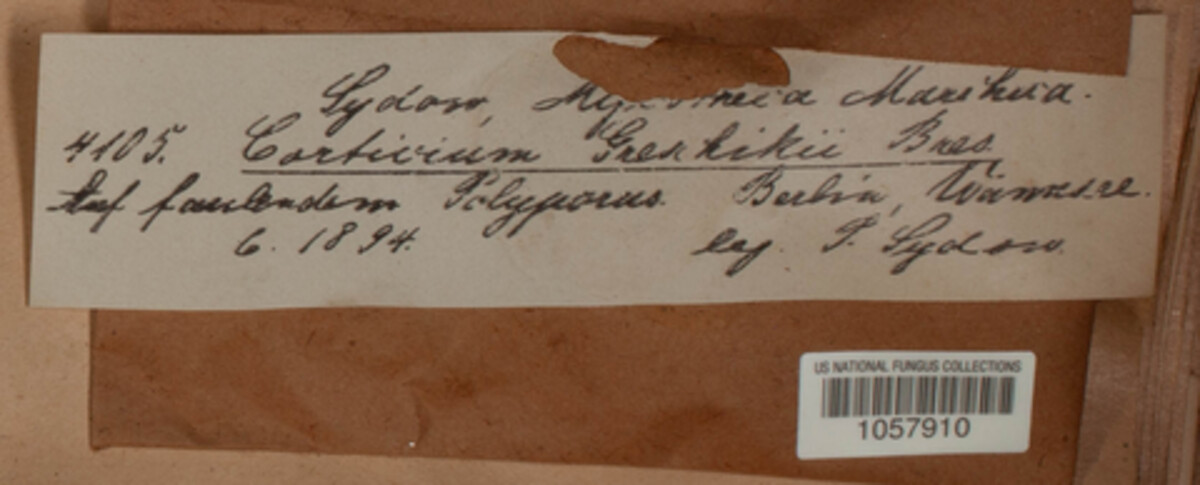 Sydow, Marchica.
4105. Corticium Greschikii Bres.
Auf faulendem Polyporus. Berlin, Wannsee.
6. 1894. leg. P. Sydow.
US NATIONAL FUNGUS COLLECTIONS
1057910